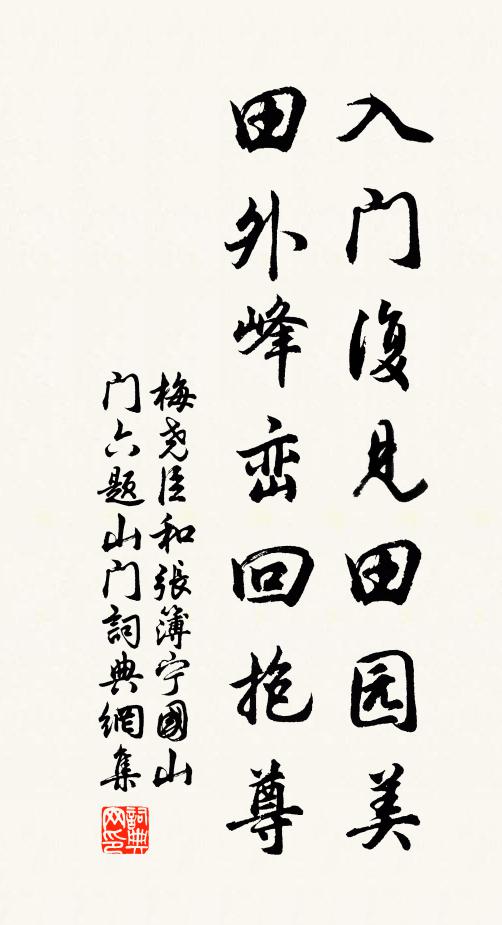 入门復见田园美
田外峰峦回抱尊
梅尧臣和張簿宁國山
门六题山门詞典網集
詞典
网印